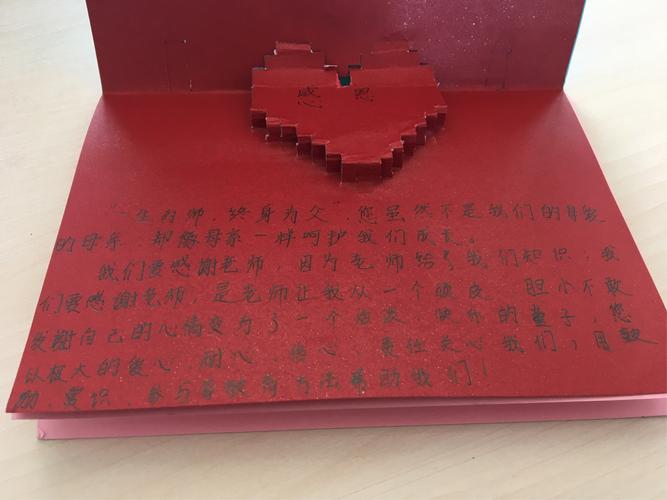 感恩
"一生为师，终身为父"，您虽然不是我们的身
的母亲，却像母亲一样呵护我们成长。
我们要感謝老师，因为老师给了我们知识，我
们要感謝老师，是老师让我从一个 皮、胆小不敢
发謝自己的心情变为了一个活泼、 的童子，您
以极大的爱心，耐心， 心， 关心我们，用鼓
励，赏识，参与 方法帮助我们！